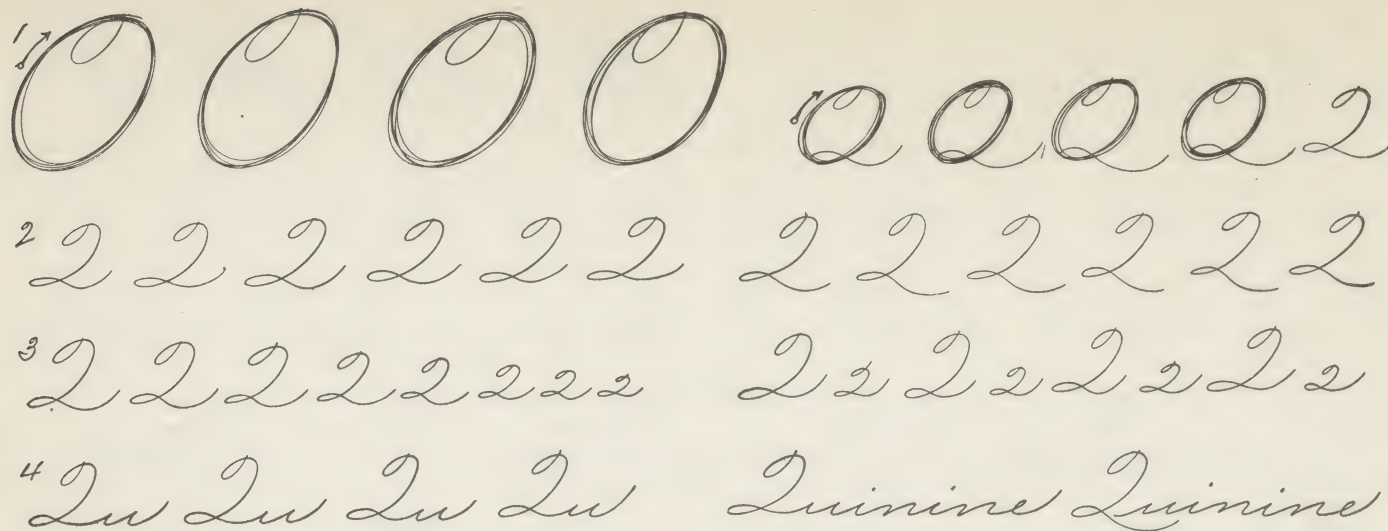 1 Q Q Q Q Q
2 Q Q Q Q Q Q Q Q Q Q Q Q
3 Q Q Q Q Q 2 2 2 Q 2 Q 2 Q 2 Q 2
4 Qu Qu Qu Qu Quinine Quinine